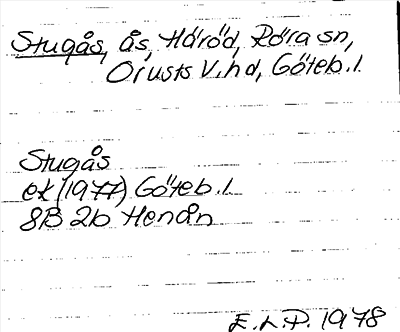 Stugås, ås, Häröd, Röra sn,
Orusts V. hd, Göteb. l.
Stugås
ek (1977) Göteb. l.
8B 2b Henån
E.L.P. 1978